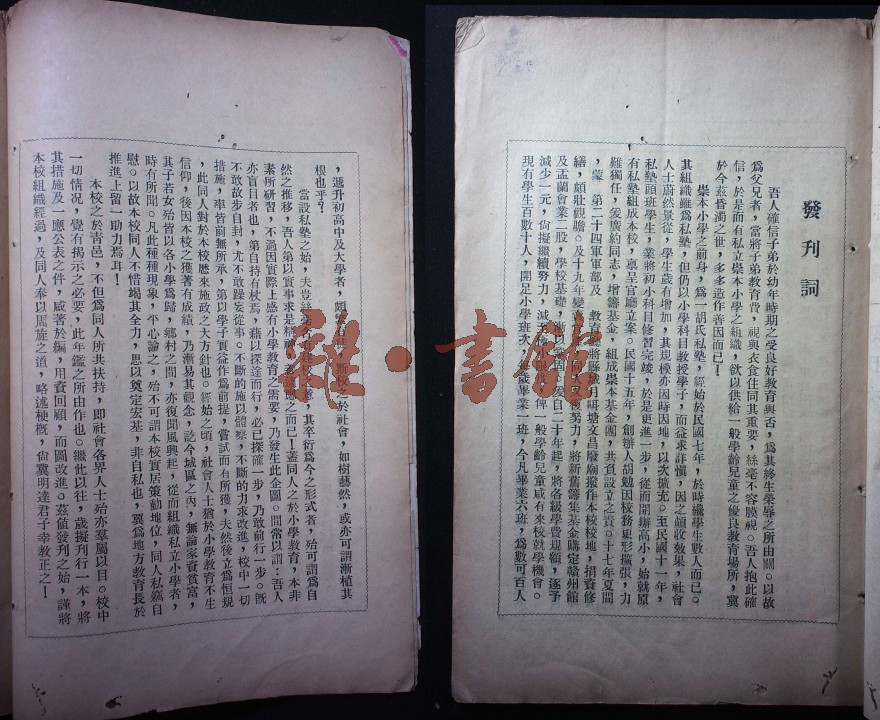 發刊詞
吾人確信子弟於幼年時期之受良好教育與否，爲其終生榮辱之所由關。以故
爲父兄者，當將子弟教育費，視與衣食住同其重要，絲毫不容膜視。吾人抱此確
信，於是而有私立崇本小學之組織，欲以供給一般學齡兒童之優良教育場所，冀
於今茲昏濁之世，多多造作善因而已！
崇本小學之前身，爲一胡氏私塾，經始於民國七年，於時纔學生數人而已。
其組織雖爲私塾，但仍以小學科目教授學子，而益求詳愼，因之頗收效果，社會
人士蔚然景從，學生歲有增加，其規模亦因時因地，以次擴充。至民國十一年，
私塾頭班學生，業將初小科目修習完竣，於是更進一步，從而開辦高小，始就原
有私塾組成本校，稟呈官廳立案。民國十五年，創辦人胡勉因校務更形擴張，力
難獨任，爰廣約同志，增籌基金，組成崇本基金團，共負設立之責。十七年夏間
，蒙 第二十四軍軍部及 教育 將縣城月咡塘文昌廢廟撥作本校校地，捐資修
繕，頗壯觀瞻。及十九年變 同人又復努力，將新舊籌集基金購定贛州館
及盂蘭會業二股，學校基礎，漸以 固。爰自二十年起，將各級學費規額，逐予
減少一元，尙擬繼續努力，減至 俾一般學齡兒童咸有來校就學機會。
現有學生百數十人，開足小學班次，每歲畢業一班，今凡畢業六班，爲數可百人
，遞升初高中及大學者，頗 學校之於社會，如樹藝然，或亦可謂漸植其
根也乎？
當設私塾之始，夫豈 意，其卒衍爲今之形式者，殆可謂爲自
然之推移，吾人第以實事求是精神 應之而已！蓋同人之於小學教育，本非
素所研習，不過因實際上感有小學教育之需要，乃發生此企圖。間常以謂：吾人
亦盲目者也，第自持有杖焉，藉以探途而行，必已探確一步，乃敢前行一步。旣
不敢故步自封，尤不敢躁妄從事。不斷的施以體察，不斷的力求改進，校中一切
措施，率皆前無所承，第以學子實益作爲前提，嘗試而有所獲，夫然後立爲恒規
，此同人對於本校歷來施政之大方針也。經始之頃，社會人士猶於小學教育不生
信仰，後因本校之獲著有成績，乃漸易其觀念，訖今城區之內，無論家資貧富，
其子若女殆皆以各小學爲歸，鄉村之間，亦復聞風興起，從而組織私立小學者，
時有所聞。凡此種種現象，平心論之，殆不可謂本校實居策動地位，同人私竊自
慰。以故本校同人不惜竭其全力，思以奠定宏基，非自私也，冀爲地方教育長於
推進上留一助力焉耳！
本校之於青邑，不但爲同人所共扶持，即社會各界人士殆亦羣屬以目。校中
一切情况，覺有揭示之必要，此年鑑之所由作也。繼此以往，歲擬刊行一本，將
其措施及一應公表之件，咸著於編，用資回顧，而圖改進。茲値發刊之始，謹將
本校組織經過，及同人奉以周旋之道，略述梗概，尙冀明達君子幸教正之！
雜·書館